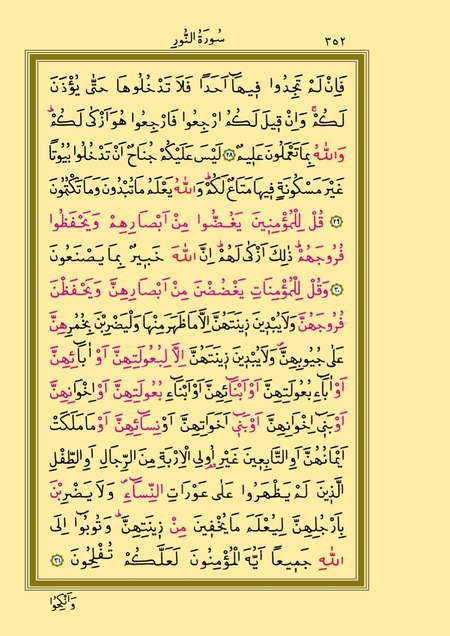 سُورَةُ النُّورِ ٣٥٢
فَاِنْ لَمْ تَجِدُوا فٖيهَٓا اَحَدًا فَلَا تَدْخُلُوهَا حَتّٰى يُؤْذَنَ
لَكُمْۚ وَاِنْ قٖيلَ لَكُمُ ارْجِعُوا فَارْجِعُوا هُوَ اَزْكٰى لَكُمْؕ
وَاللّٰهُ بِمَا تَعْمَلُونَ عَلٖيمٌ ﴿٢٨﴾ لَيْسَ عَلَيْكُمْ جُنَاحٌ اَنْ تَدْخُلُوا بُيُوتًا
غَيْرَ مَسْكُونَةٍ فٖيهَا مَتَاعٌ لَكُمْؕ وَاللّٰهُ يَعْلَمُ مَا تُبْدُونَ وَمَا تَكْتُمُونَ
﴿٢٩﴾ قُلْ لِلْمُؤْمِنٖينَ يَغُضُّوا مِنْ اَبْصَارِهِمْ وَيَحْفَظُوا
فُرُوجَهُمْؕ ذٰلِكَ اَزْكٰى لَهُمْؕ اِنَّ اللّٰهَ خَبٖيرٌ بِمَا يَصْنَعُونَ
﴿٣٠﴾ وَقُلْ لِلْمُؤْمِنَاتِ يَغْضُضْنَ مِنْ اَبْصَارِهِنَّ وَيَحْفَظْنَ
فُرُوجَهُنَّ وَلَا يُبْدٖينَ زٖينَتَهُنَّ اِلَّا مَا ظَهَرَ مِنْهَا وَلْيَضْرِبْنَ بِخُمُرِهِنَّ
عَلٰى جُيُوبِهِنَّࣕ وَلَا يُبْدٖينَ زٖينَتَهُنَّ اِلَّا لِبُعُولَتِهِنَّ اَوْ اٰبَٓائِهِنَّ
اَوْ اٰبَٓاءِ بُعُولَتِهِنَّ اَوْ اَبْنَٓائِهِنَّ اَوْ اَبْنَٓاءِ بُعُولَتِهِنَّ اَوْ اِخْوَانِهِنَّ
اَوْ بَنٖٓى اِخْوَانِهِنَّ اَوْ بَنٖٓى اَخَوَاتِهِنَّ اَوْ نِسَٓائِهِنَّ اَوْ مَا مَلَكَتْ
اَيْمَانُهُنَّ اَوِ التَّابِعٖينَ غَيْرِ اُو۬لِى الْاِرْبَةِ مِنَ الرِّجَالِ اَوِ الطِّفْلِ
الَّذٖينَ لَمْ يَظْهَرُوا عَلٰى عَوْرَاتِ النِّسَٓاءِࣕ وَلَا يَضْرِبْنَ
بِاَرْجُلِهِنَّ لِيُعْلَمَ مَا يُخْفٖينَ مِنْ زٖينَتِهِنَّؕ وَتُوبُٓوا اِلَى
اللّٰهِ جَمٖيعًا اَيُّهَ الْمُؤْمِنُونَ لَعَلَّكُمْ تُفْلِحُونَ ﴿٣١﴾
وَاَنْكِحُوا